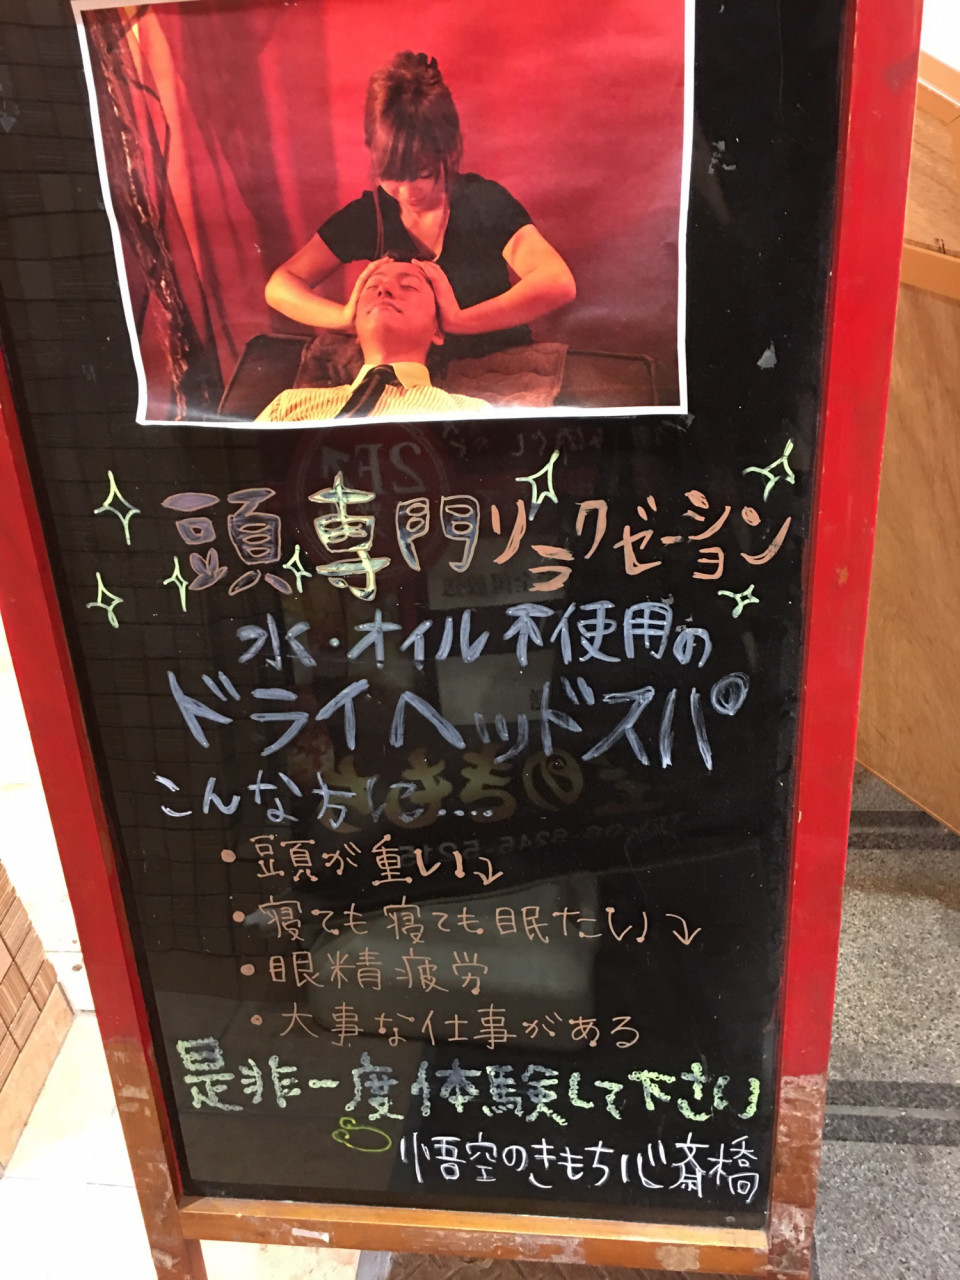 頭専門リラクゼーション
水・オイル不使用の
ドライヘッドスパ
こんな方に....
・頭が重い↘
・寝ても寝ても眠たい↘
・眼精疲労
・大事な仕事がある
是非一度体験して下さい
悟空のきもち心斎橋